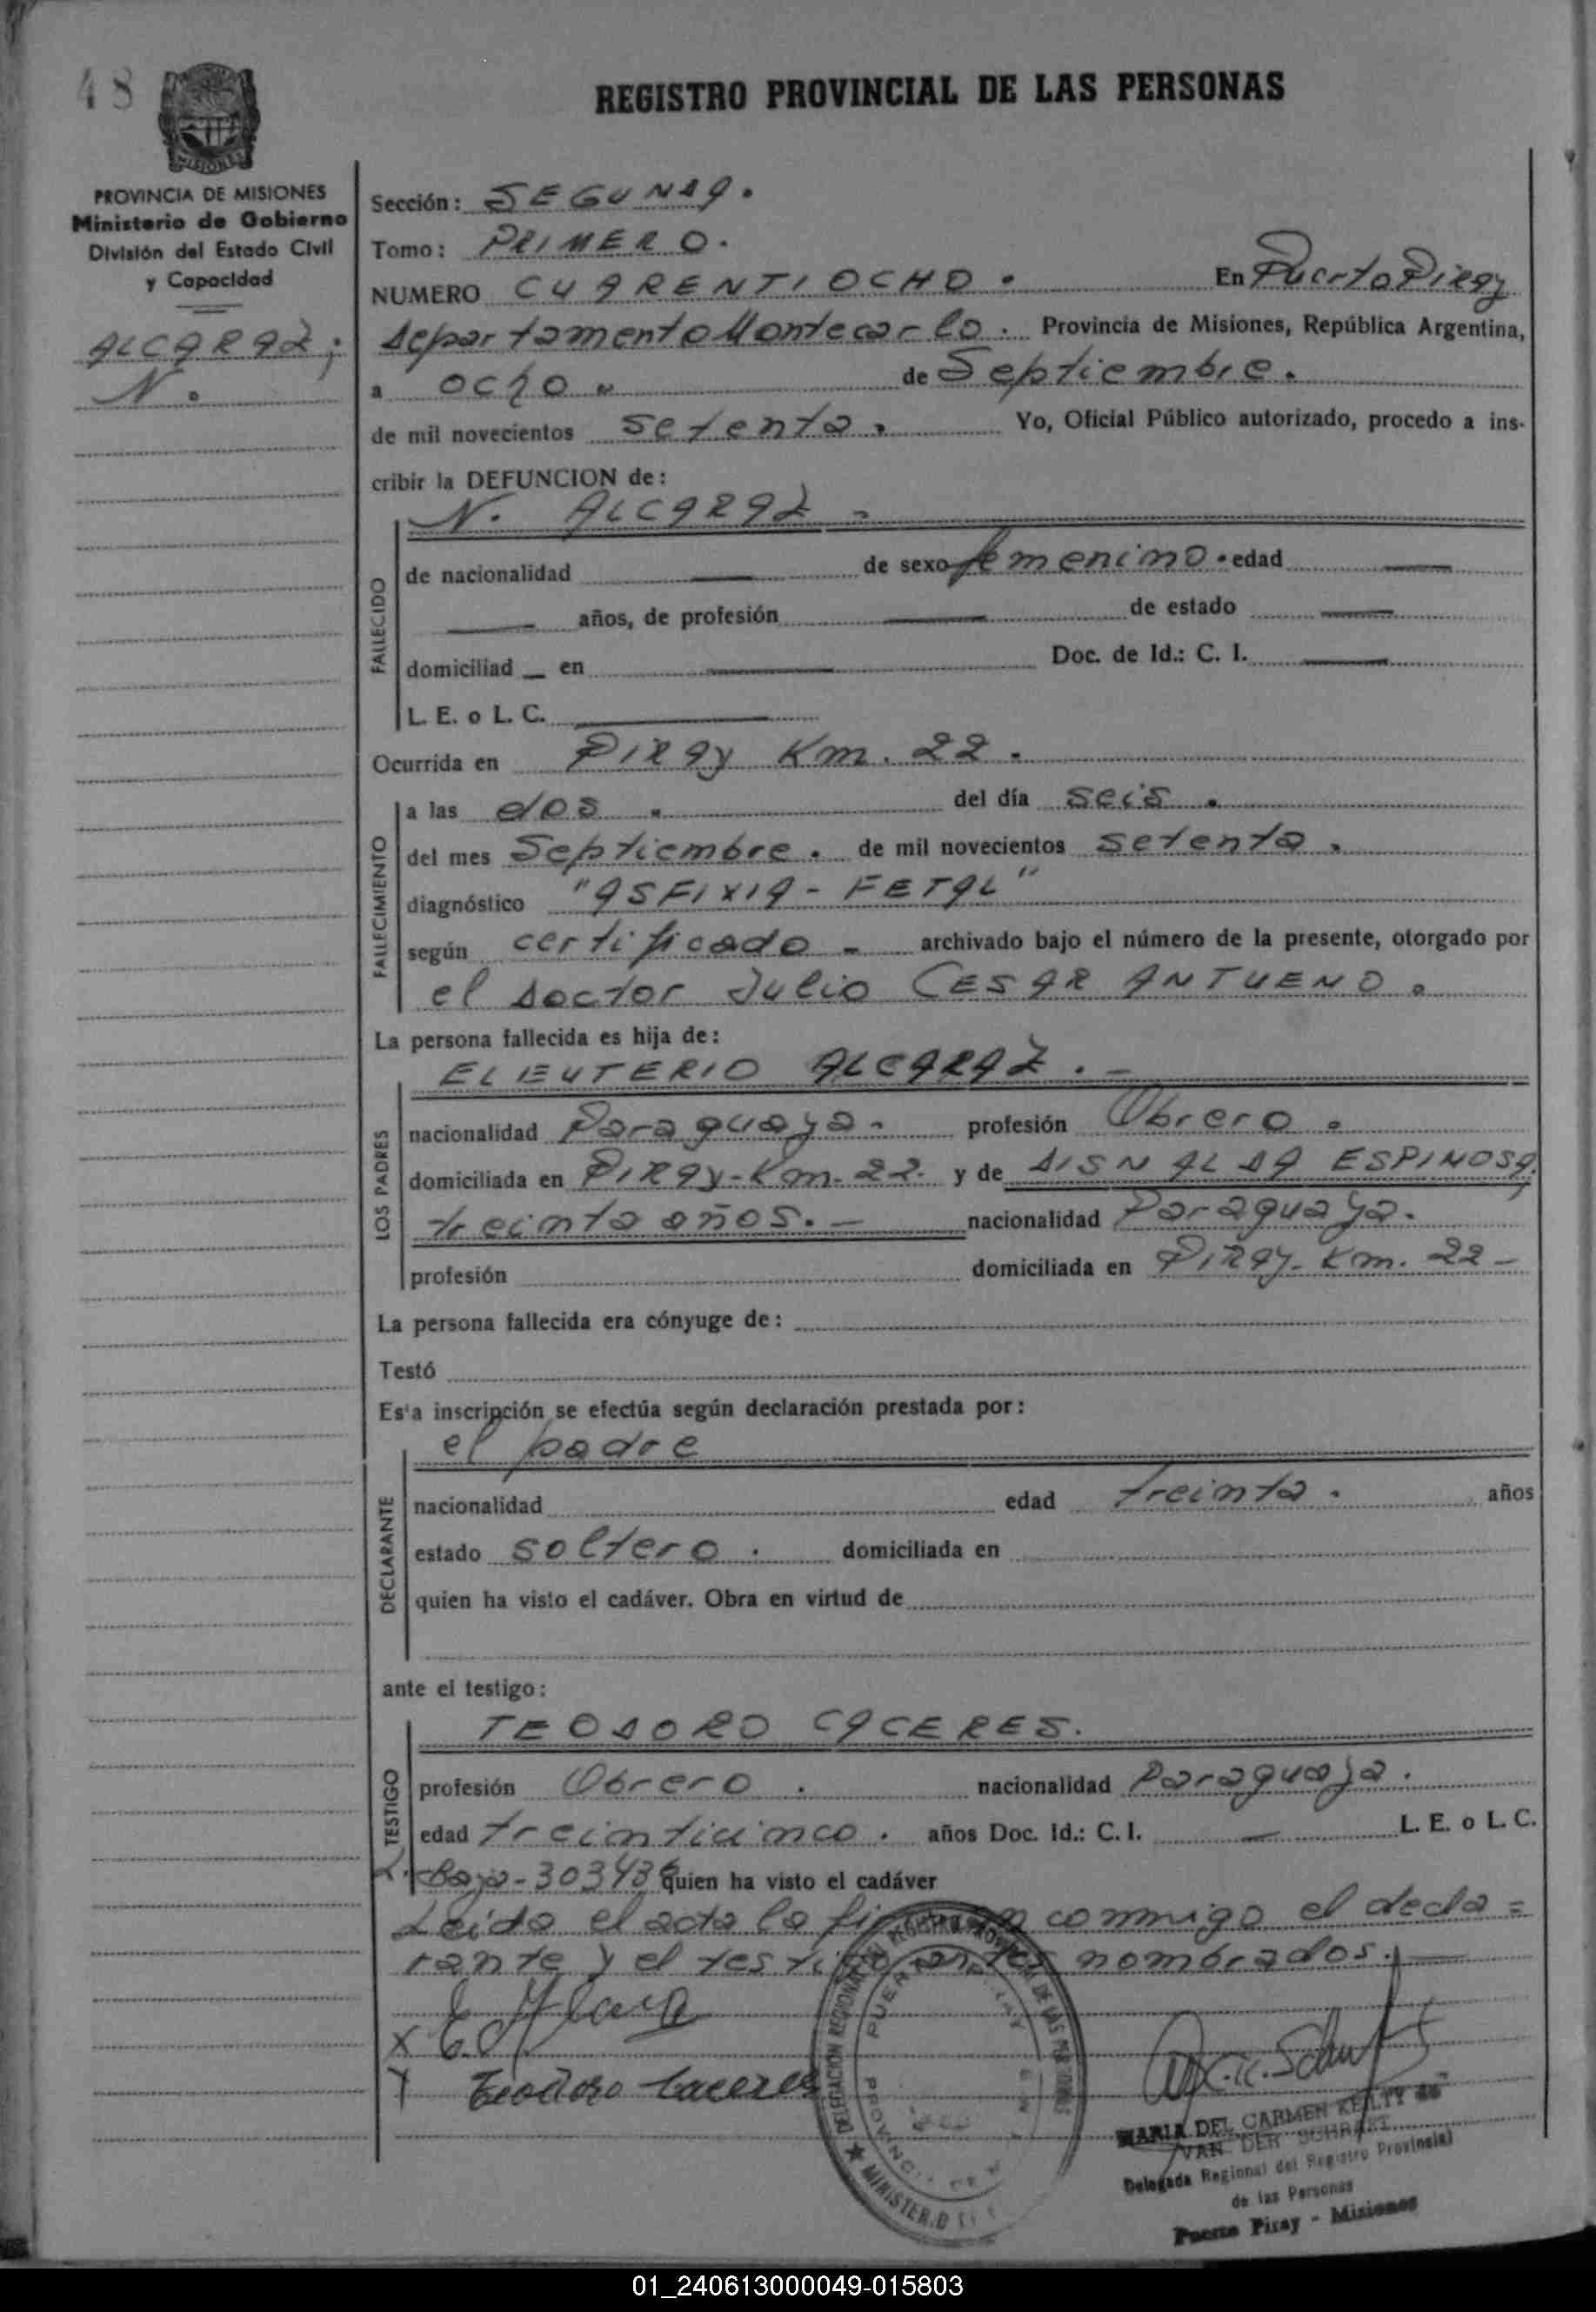 48
REGISTRO PROVINCIAL DE LAS PERSONAS
MISIONES
PROVINCIA DE MISIONES
Ministerio de Gobierno
División del Estado Civil
y Capacidad
ALCARAZ;
N.
Sección: SEGUNDA.
Tomo: PRIMERO.
NUMERO CUARENTIOCHO. En Puerto Piray
departamento Montecarlo. Provincia de Misiones, República Argentina,
a ocho de Septiembre.
de mil novecientos setenta. Yo, Oficial Público autorizado, procedo a ins-
cribir la DEFUNCION de:
N. ALCARAZ -
FALLECIDO
de nacionalidad — de sexo femenino. edad —
— años, de profesión — de estado —
domiciliad — en — Doc. de Id.: C. I. —
L. E. o L. C. —
Ocurrida en PIRAY Km. 22.
FALLECIMIENTO
a las dos. del día seis.
del mes Septiembre. de mil novecientos setenta.
diagnóstico "ASFIXIA - FETAL"
según certificado - archivado bajo el número de la presente, otorgado por
el doctor Julio CESAR ANTUENO.
La persona fallecida es hija de:
LOS PADRES
ELEUTERIO ALCARAZ. -
nacionalidad Paraguaya. profesión Obrero.
domiciliada en PIRAY-Km. 22. y de ESPINOSA,
treinta años. - nacionalidad Paraguaya.
profesión domiciliada en PIRAY-Km. 22 -
La persona fallecida era cónyuge de:
Testó
Es'a inscripción se efectúa según declaración prestada por:
DECLARANTE
el padre
nacionalidad edad treinta. años
estado soltero. domiciliada en
quien ha visto el cadáver. Obra en virtud de
ante el testigo:
TESTIGO
TEODORO CACERES.
profesión Obrero. nacionalidad Paraguaya.
edad treinticinco. años Doc. Id.: C. I. — L. E. o L. C.
quien ha visto el cadáver
Leída el acta la firman conmigo el decla=
rante y el testigo antes nombrados. —
X
Teodoro Caceres
MARIA DEL CARMEN KEILTY de
VAN DER SCHRAFT
Delegada Regional del Registro Provincial
de las Personas
Puerto Piray - Misiones
01_240613000049-015803